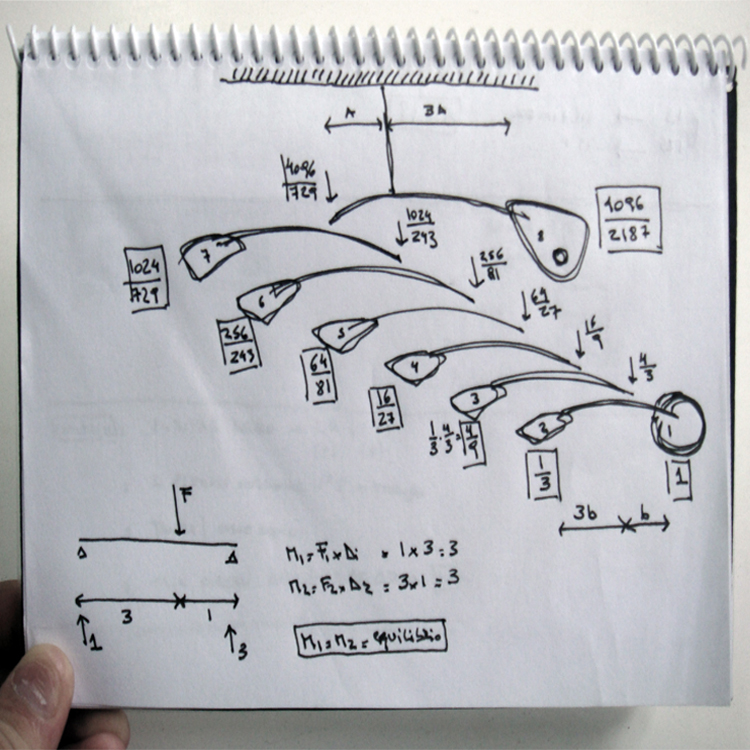 A 3A
4096
729
1024
243
8
4096
2187
7
1024
729
256
81
6
256
243
64
27
5
64
81
16
9
4
16
27
4
3
3
1/3 · 4/3 = 4/9
2
1
3
1
1
3b b
F
M1 = F1 x D1 = 1 x 3 = 3
M2 = F2 x D2 = 3 x 1 = 3
3 1
1 3
M1 = M2 = equilibrio